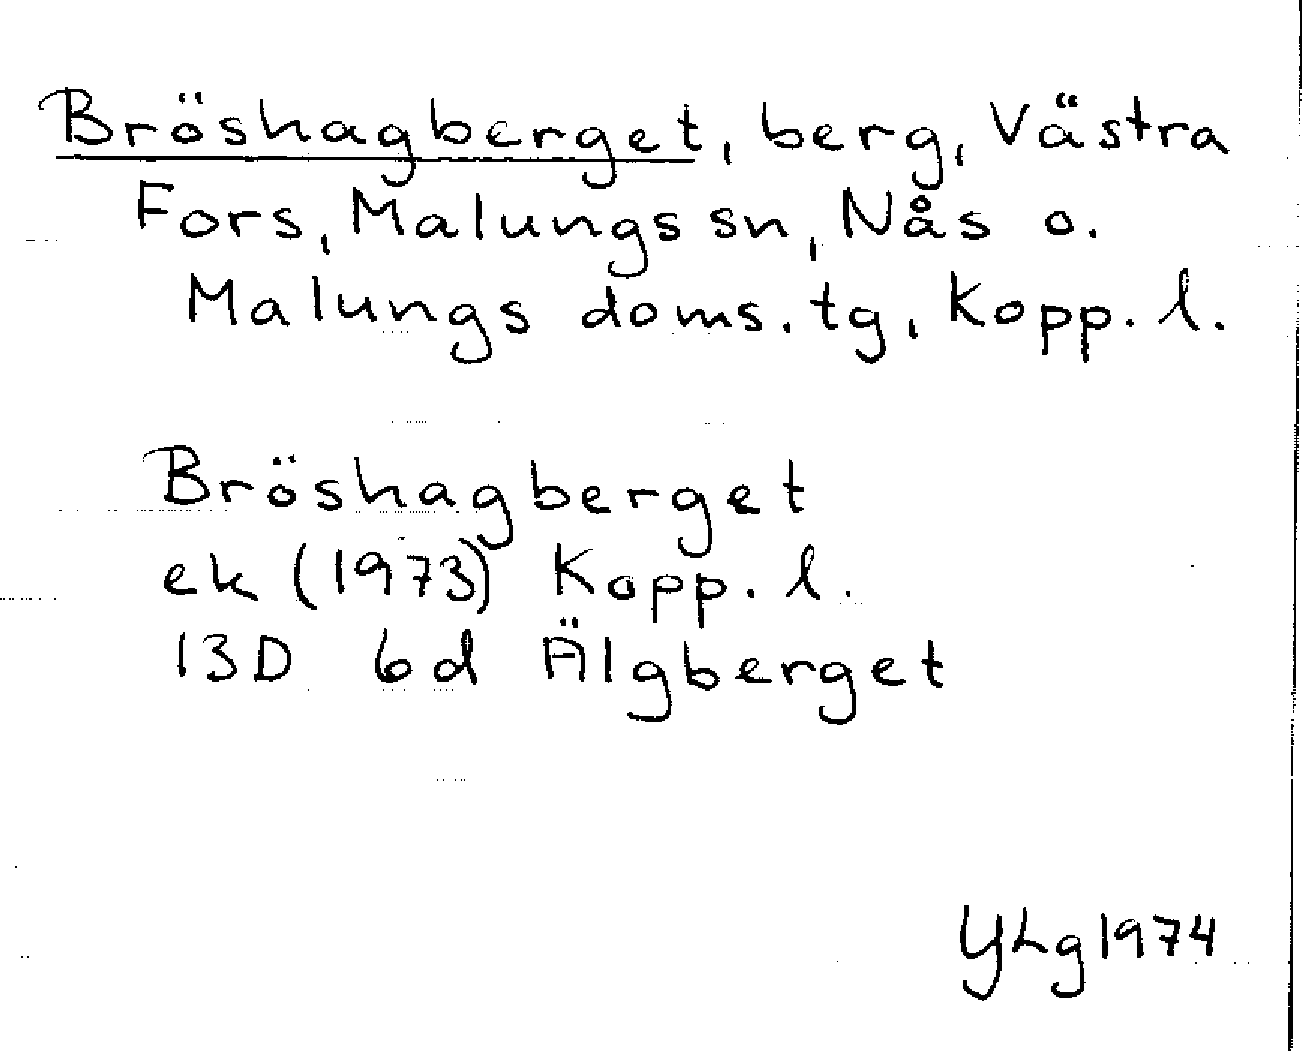 Bröshagberget, berg, Västra
Fors, Malungs sn, Nås o.
Malungs doms. tg, Kopp. l.
Bröshagberget
ek (1973) Kopp. l.
13D 6d Älgberget
YLg 1974